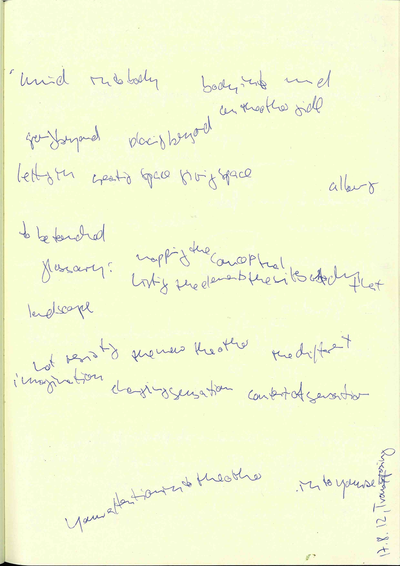 mind into body body into mind
on the other side
going beyond placing beyond
letting in creating space giving space
allowing
to be touched
glossary: mapping the conceptual
listing the elements the that
landscape
not resisting the new the other the different
imagination changing sensation context of sensation
your attention into the other into your